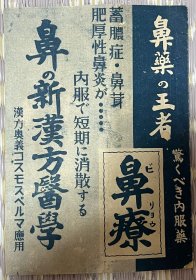 鼻薬の王者
驚くべき内服薬
鼻療
ビリョウ
蓄膿症・鼻茸
肥厚性鼻炎が……
内服で短期に消散する
鼻の新漢方醫學
漢方奥義コスモスペルマ應用